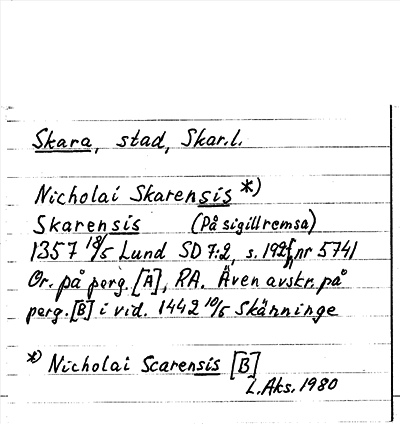 Skara, stad, Skar.l.
Nicholai Skarensis *)
Skarensis (På sigillremsa)
1357 18/5 Lund SD 7:2, s. 192f, nr 5741
Or. på perg. [A], RA. Även avskr. på
perg. [B] i vid. 1442 10/5 Skänninge
*) Nicholai Scarensis [B]
L. Aks. 1980